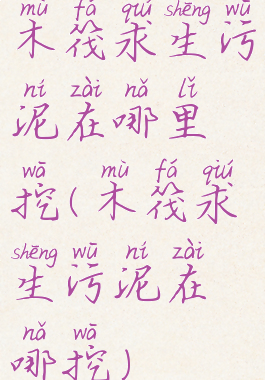 mù fá qiú shēng wū
木筏求生污
ní zài nǎ lǐ
泥在哪里
wā mù fá qiú
挖(木筏求
shēng wū ní zài
生污泥在
nǎ wā
哪挖)